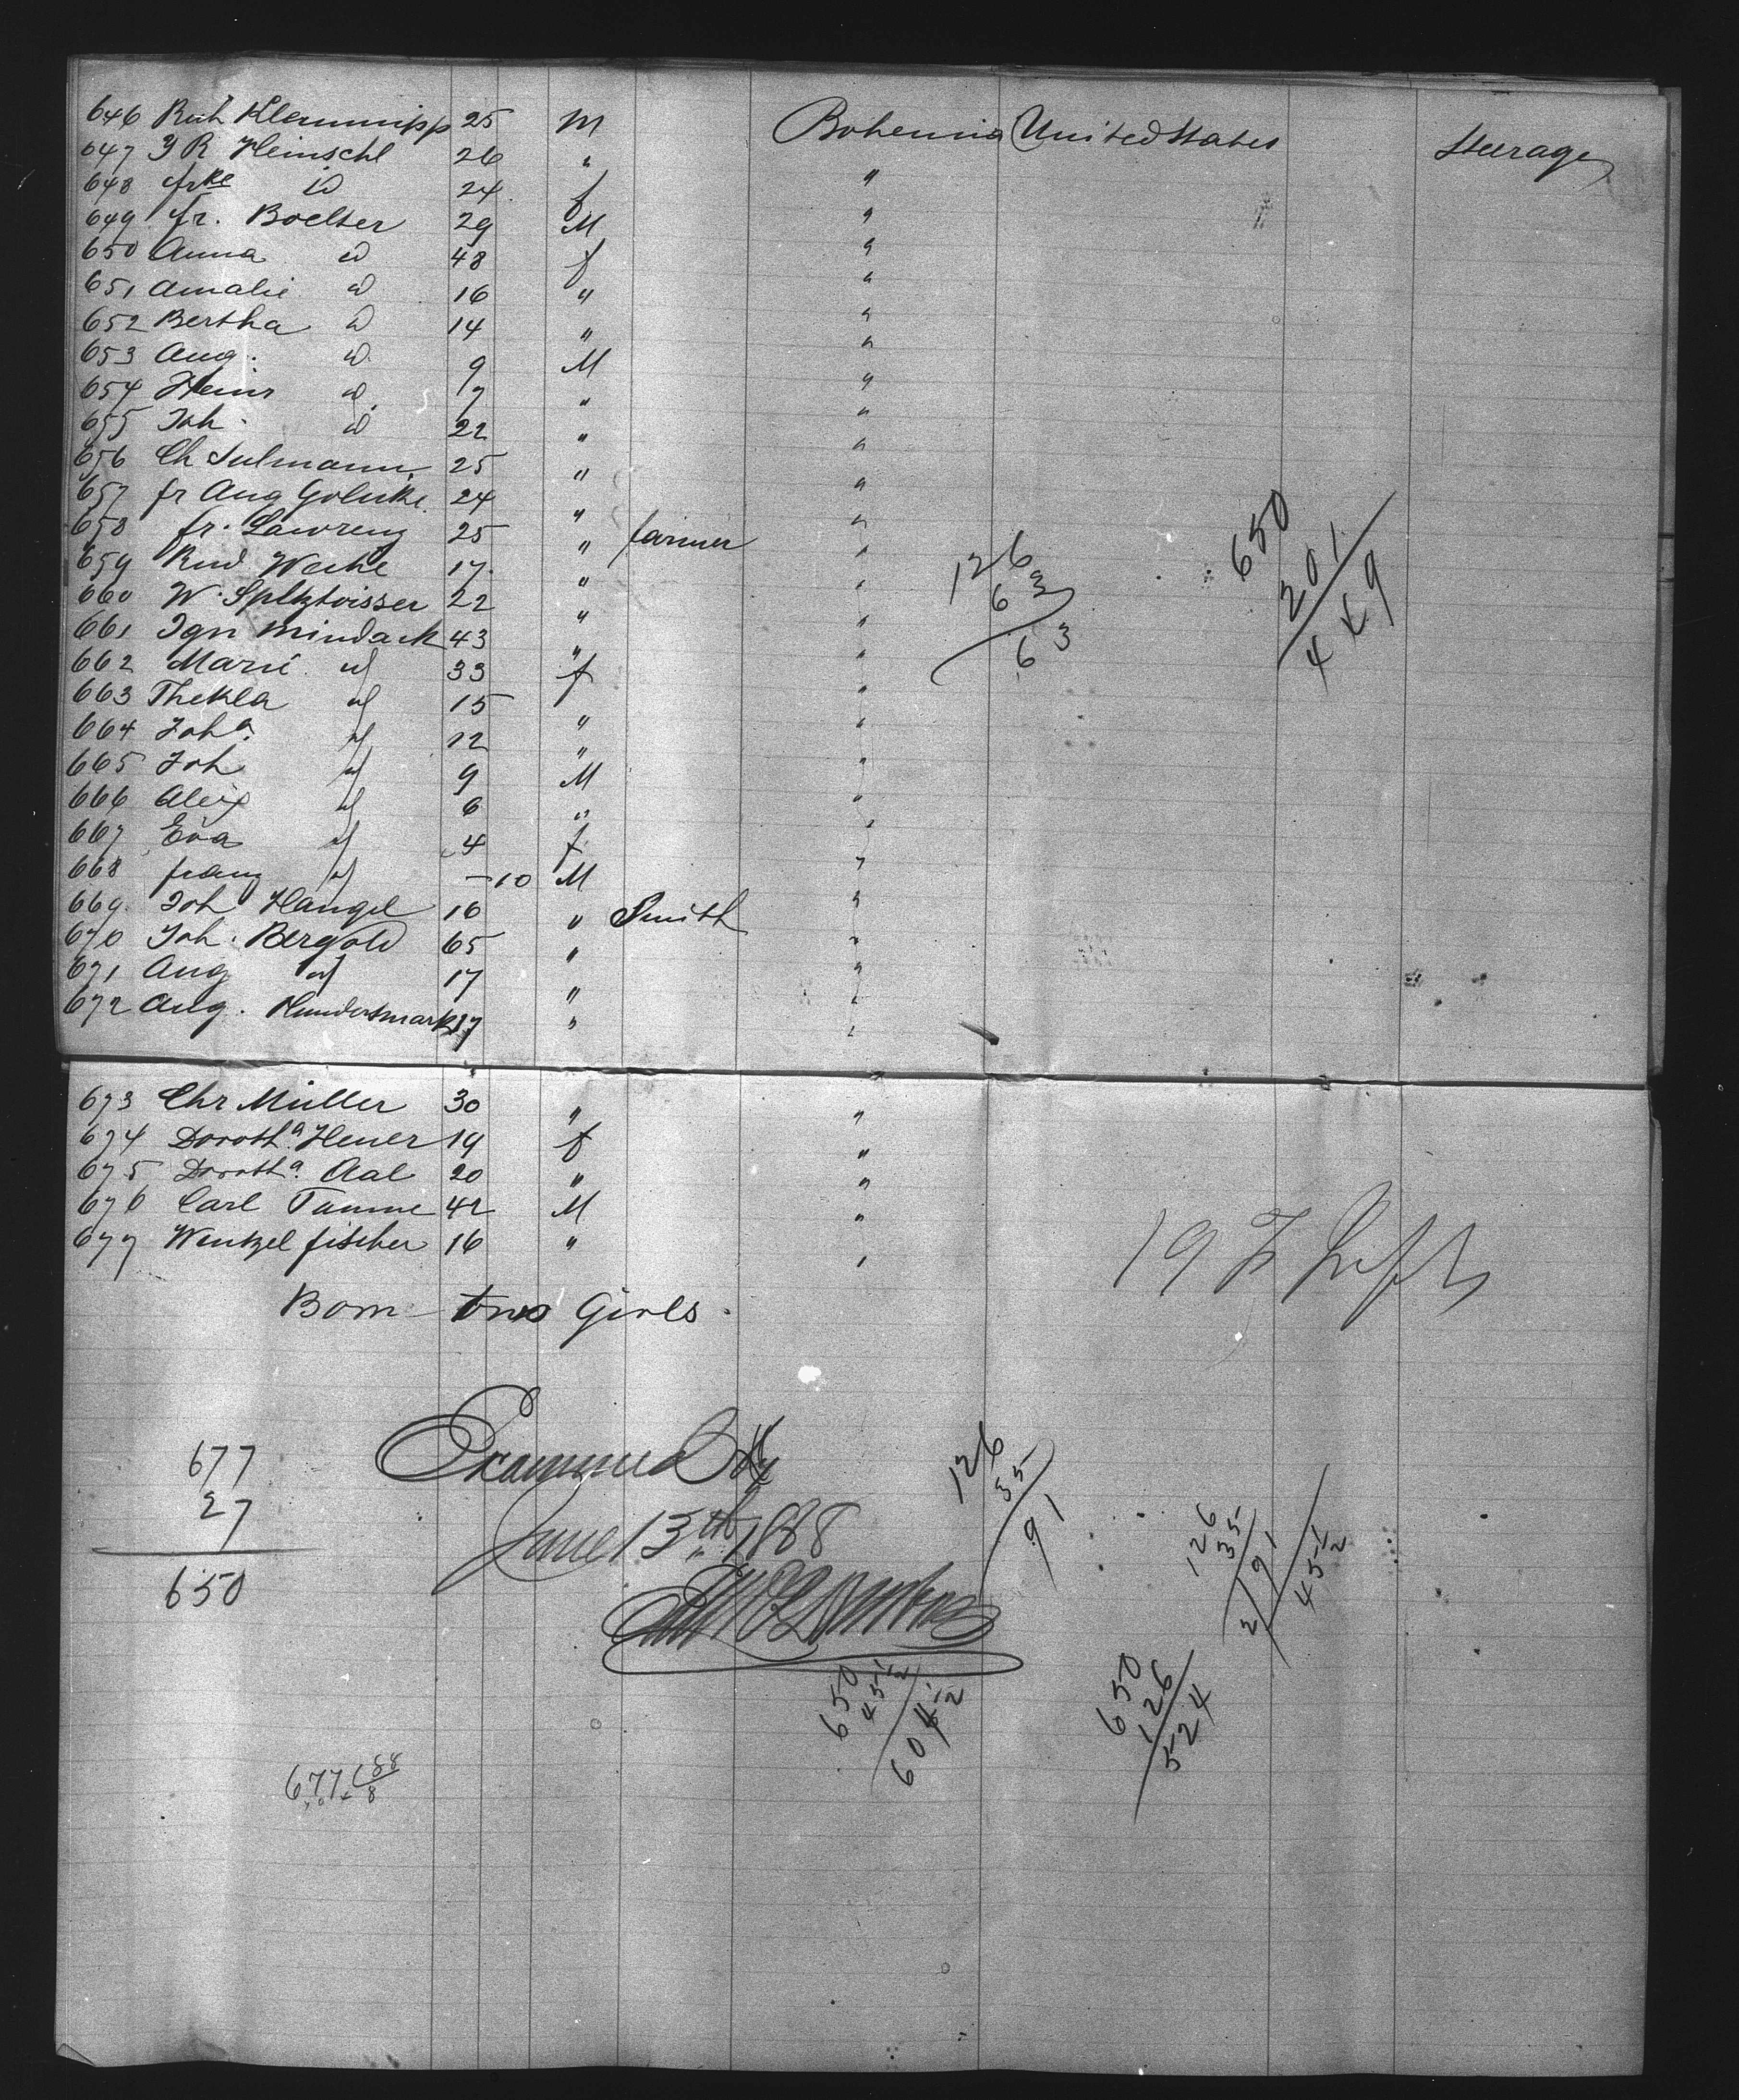 646 Rich Klemmipp 25 M Bohemia United States Steerage
647 J R Heinschl 26 " "
648 frke id 24 f "
649 fr. Boelter 29 M "
650 Anna id 48 f "
651 Amalie id 16 " "
652 Bertha id 14 " "
653 Aug. id. 9 M "
654 Heinr id. 7 " "
655 Joh. id 22 " "
656 Ch Sulmann 25 " "
657 fr Aug Golnike. 24 " "
658 fr. Lawrenz 25 " farmer "
659 Rud Weche 17. " "
660 W. Spltztoisser 22 " "
661 Ign Mindack 43 " "
662 Marie id 33 f "
663 Thekla id 15 " "
664 Joha. id 12 " "
665 Joh id 9 M "
666 Alex id 6 " "
667 Eva id 4 f "
668 franz id - 10 M "
669. Joh Hangel 16 " Smith "
670 Joh. Bergold 65 " "
671 Aug id 17 " "
672 Aug. Hundertmark 17 " "
126
63
63
650
201
449
673 Chr Müller 30 " "
674 Dorotha Heuer 19 f "
675 Dorotha. Aal 20 " "
676 Carl Tamme 42 M "
677 Wentzel fischer 16 " "
Born two Girls.
677
27
650
Examined by
June 13th 1888
126
35
91
126
35
2/91
45 1/2
650
45 1/2
604 1/2
650
126
524
677